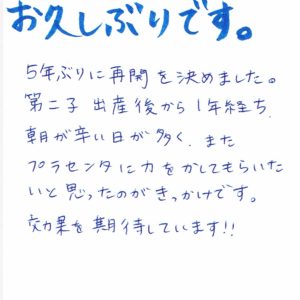 お久しぶりです。
5年ぶりに再開を決めました。
第二子出産後から1年経ち、
朝が辛い日が多く、また
プラセンタに力をかしてもらいた
いと思ったのがきっかけです。
効果を期待しています!!